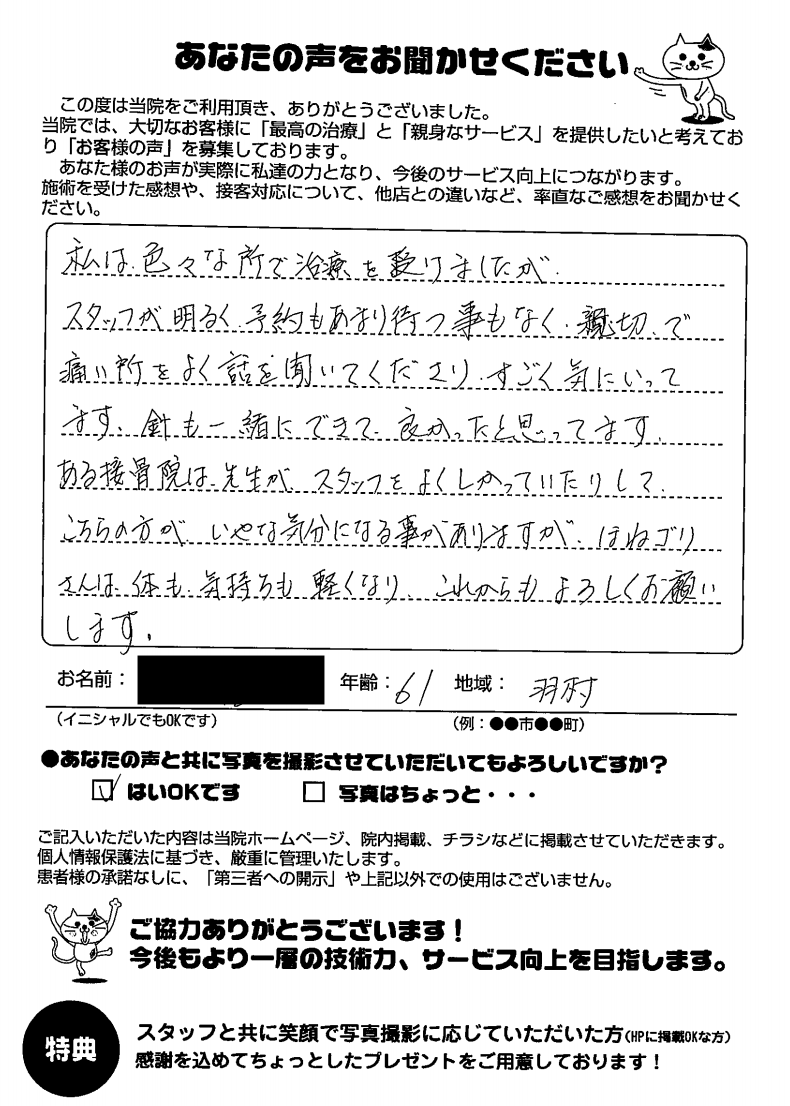 あなたの声をお聞かせください
この度は当院をご利用頂き、ありがとうございました。
当院では、大切なお客様に「最高の治療」と「親身なサービス」を提供したいと考えてお
り「お客様の声」を募集しております。
あなた様のお声が実際に私達の力となり、今後のサービス向上につながります。
施術を受けた感想や、接客対応について、他店との違いなど、率直なご感想をお聞かせく
ださい。
私は、色々な所で治療を受けましたが、
スタッフが明るく、予約もあまり待つ事もなく、親切、で
痛い所をよく話を聞いてくださり、すごく気にいって
ます、針も一緒にできて、良かったと思ってます、
ある接骨院は、先生が、スタッフをよくしかっていたりして、
こちらの方が、いやな気分になる事がありますが、ほねゴリ
さんは、体も、気持ちも軽くなり、これからもよろしくお願い
します。
お名前： 年齢：61 地域： 羽村
（イニシャルでもOKです） （例：●●市●●町）
●あなたの声と共に写真を撮影させていただいてもよろしいですか？
☑ はいOKです □ 写真はちょっと・・・
ご記入いただいた内容は当院ホームページ、院内掲載、チラシなどに掲載させていただきます。
個人情報保護法に基づき、厳重に管理いたします。
患者様の承諾なしに、「第三者への開示」や上記以外での使用はございません。
ご協力ありがとうございます！
今後もより一層の技術力、サービス向上を目指します。
特典
スタッフと共に笑顔で写真撮影に応じていただいた方（HPに掲載OKな方）
感謝を込めてちょっとしたプレゼントをご用意しております！